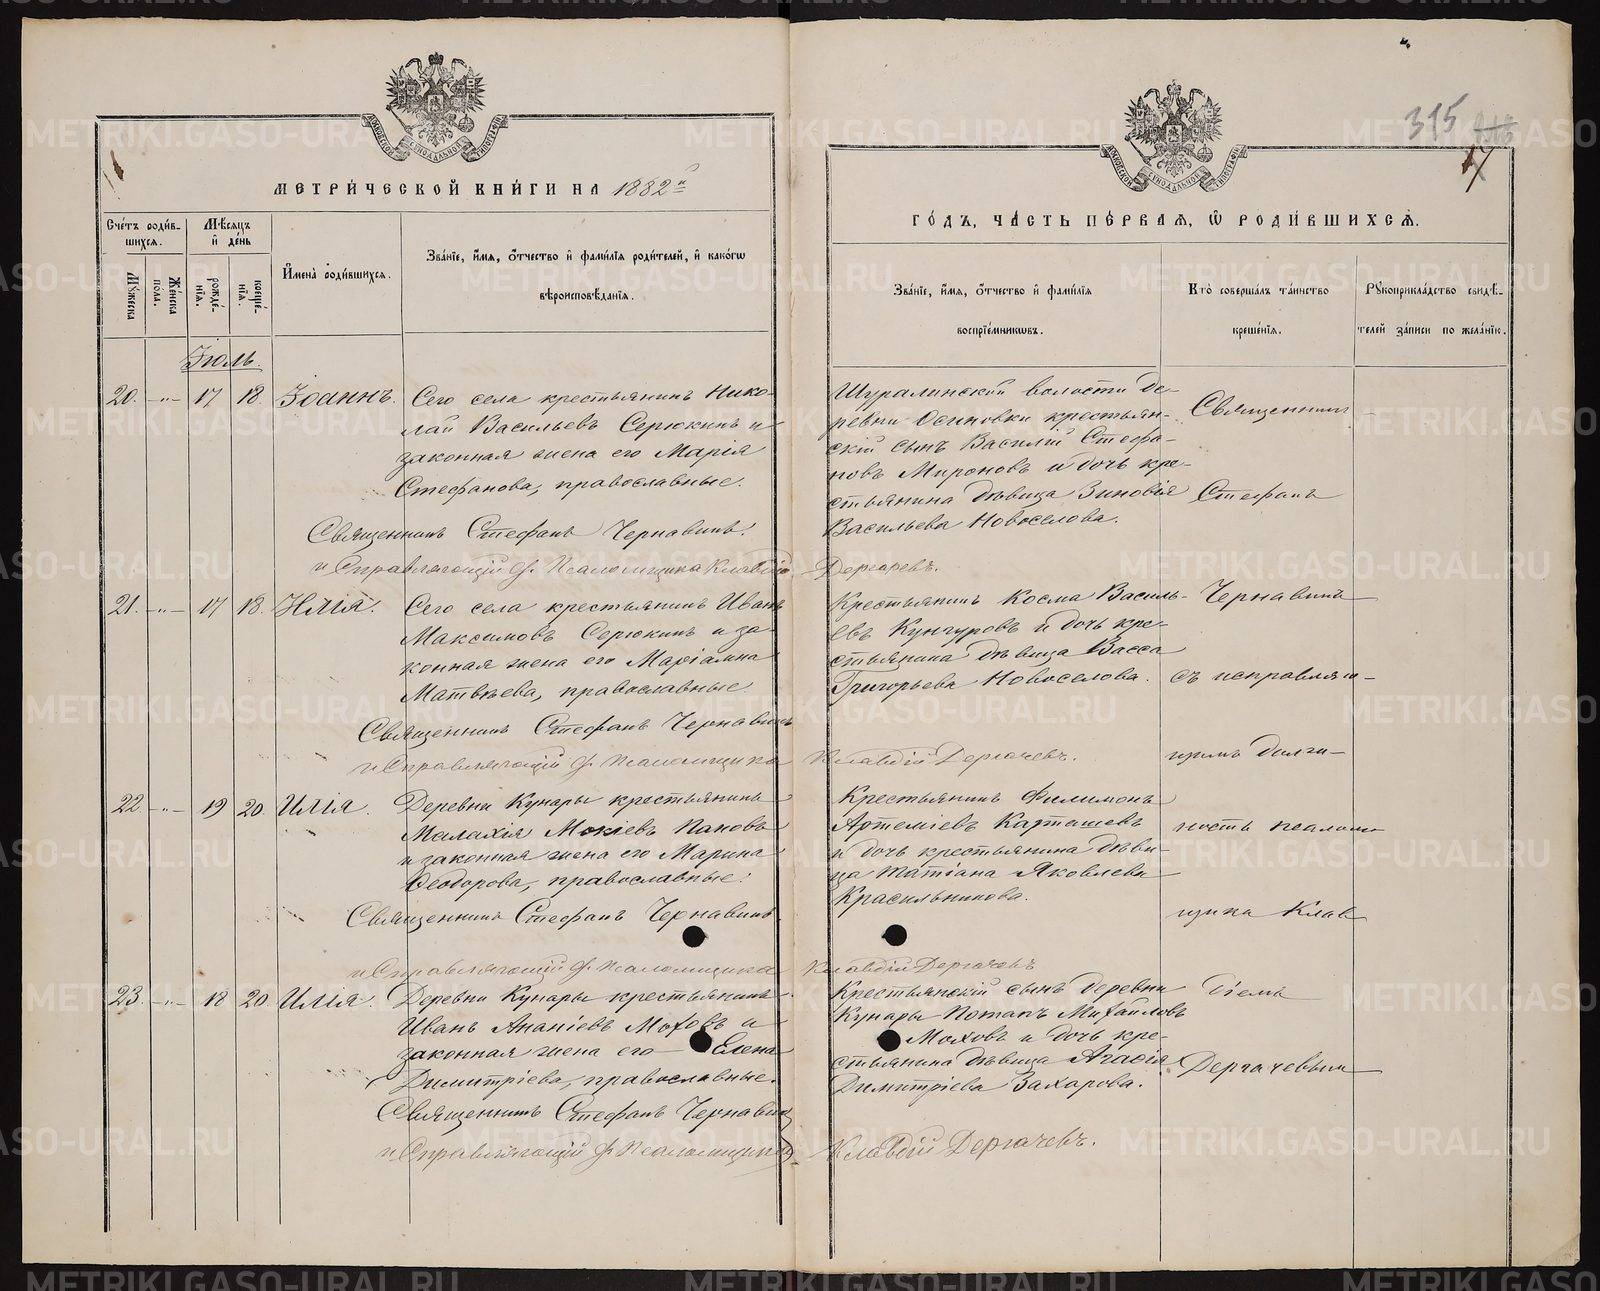 315
17
МЕТРИ́ЧЕСКОЙ КНИ́ГИ НА 1882й
Сче́тъ роди́в-
шихся.
Мѣ́сяцъ
и҆ де́нь
Мꙋ́жеска
Же́нска
по́ла.
рожде́-
нїѧ.
креще́-
нїѧ.
И҆мена̀ роди́вшихся.
Зва́нїе, и҆́мѧ, ѻ҆́тчество и҆ фами́лїѧ роди́телей, и҆ како́гѡ
вѣроисповѣ́данїѧ.
ГО́ДЪ, ЧА́СТЬ ПЕ́РВАѦ, Ѡ҆ РОДИ́ВШИХСѦ.
Зва́нїе, и҆́мѧ, ѻ҆́тчество и҆ фами́лїѧ
воспрїе́мникѡвъ.
Кто̀ соверша́лъ та́инство
креще́нїѧ.
Рꙋкоприкла́дство свидѣ́-
телей за́писи по жела́нїю.
Іюль.
20. -"- 17 18. Іоаннъ. Сего села крестьянинъ Нико-
лай Васильевъ Серюкинъ и
законная жена его Марія
Стефанова, православные.
Священникъ Стефанъ Чернавинъ.
и Справляющій д. Псаломщика Клавдій Дергачевъ.
Шуралинской волости де-
ревни Осиновки крестьян-
скій сынъ Василій Стефа-
новъ Мироновъ и дочь кре-
стьянина дѣвица Зиновія
Васильева Новоселова.
Священникъ
Стефанъ
21. -"- 17 18. Илія. Сего села крестьянинъ Иванъ
Максимовъ Серюкинъ и за-
конная жена его Маріамна
Матвѣева, православные.
Священникъ Стефанъ Чернавинъ
и Справляющій д. Псаломщика Клавдій Дергачевъ.
Крестьянинъ Косма Василь-
евъ Кунгуровъ и дочь кре-
стьянина дѣвица Васса
Григорьева Новоселова.
Чернавинъ
съ исправляю-
щимъ долж-
22. -"- 19 20. Илія. Деревни Кунары крестьянинъ
Малахія Мокіевъ Пановъ
и законная жена его Марина
Ѳеодорова, православные.
Священникъ Стефанъ Чернавинъ
и Справляющій д. Псаломщика Клавдій Дергачевъ
Крестьянинъ Филимонъ
Артеміевъ Карташевъ
и дочь крестьянина дѣви-
ца Татіана Яковлева
Красильникова.
ность псалом-
щика Клав
23. -"- 18 20 Илія. Деревни Кунары крестьянинъ
Иванъ Ананіевъ Моховъ и
законная жена его Елена
Димитріева, православные.
Священникъ Стефанъ Чернавин
и Справляющій д. Псаломщика Клавдій Дергачевъ.
Крестьянскій сынъ деревни
Кунары Потапъ Михайловъ
Моховъ и дочь кре-
стьянина дѣвица Агафія
Димитріева Захарова.
діемъ
Дергачевым
METRIKI.GASO-URAL.RU